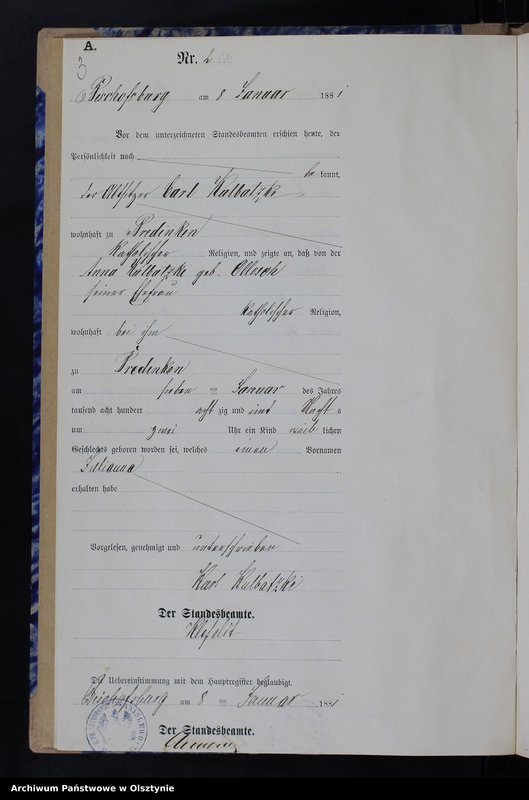 A.
3
Nr. 2
Bischofsburg am 8 Januar 1881
Vor dem unterzeichneten Standesbeamten erschien heute, der
Persönlichkeit nach
be kannt,
der Altsitzer Carl Kalbatzki
wohnhaft zu Bredinken
katholischer Religion, und zeigte an, daß von der
Anna Kalbatzki geb. Ollesch
seiner Ehefrau
katholischer Religion,
wohnhaft bei ihm
zu Bredinken
am sieben ten Januar des Jahres
tausend acht hundert acht zig und eins Nachts
um zwei Uhr ein Kind weib lichen
Geschlechts geboren worden sei, welches einen Vornamen
Julianna
erhalten habe
Vorgelesen, genehmigt und unterschrieben
Karl Kalbatzki
Der Standesbeamte.
Die Uebereinstimmung mit dem Hauptregister beglaubigt.
Bischofsburg am 8 ten Januar 1881
Der Standesbeamte.
Archiwum Państwowe w Olsztynie
Archiwum Państwowe w Olsztynie